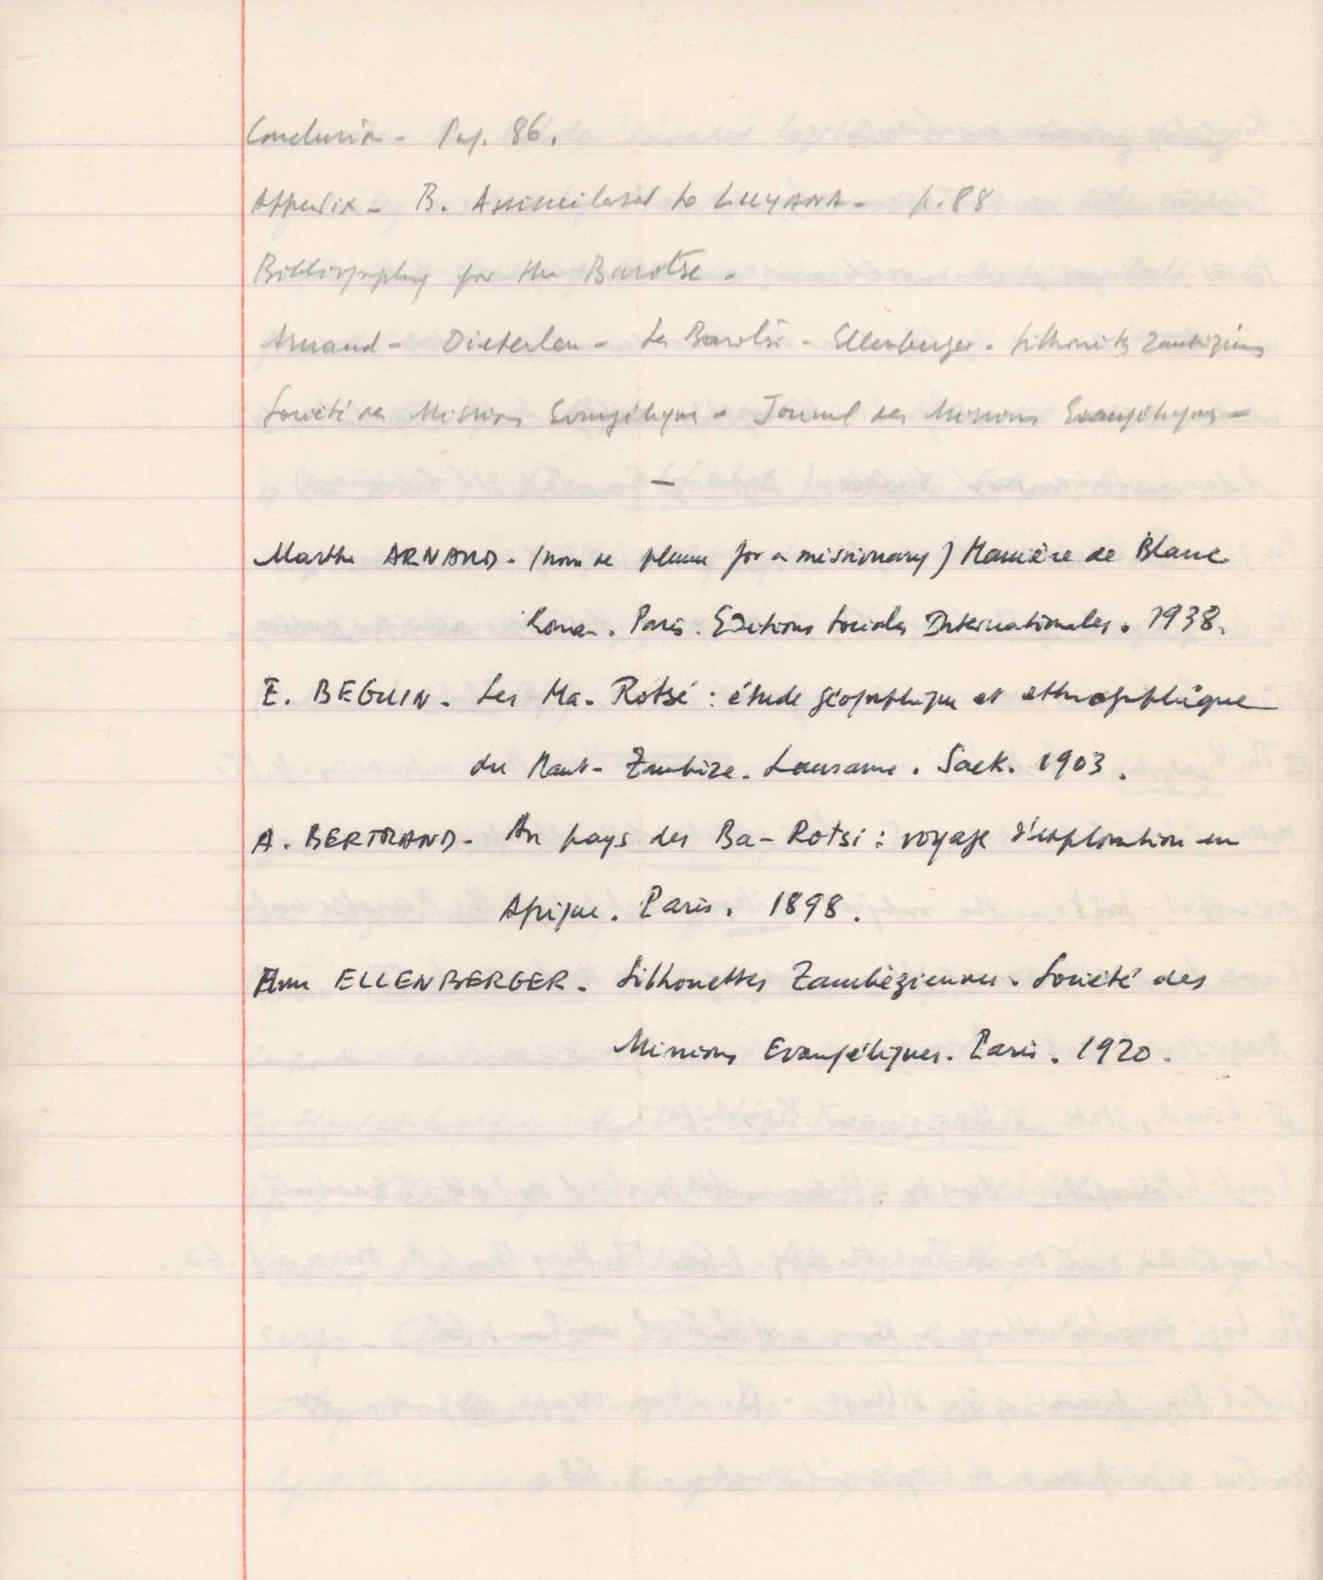 Conclusion - Pag. 86.
Appendix - B. Assimilated to LUYANA - p. 88
Bibliography for the Barotse -
Arnaud - Dieterlen - Les Barotsi - Ellenberger - Silhouettes Zambéziennes
Société des Missions Evangéliques - Journal des Missions Evangéliques -
—
Marthe ARNAUD - (nom de plume for a missionary) Manière de Blanc
Roman. Paris. Editions Sociales Internationales. 1938.
E. BEGUIN - Les Ma-Rotsé : étude géographique et ethnographique
du Haut-Zambèze. Lausanne. Sack. 1903.
A. BERTRAND - Au pays des Ba-Rotsi : voyage d'exploration en
Afrique. Paris. 1898.
ELLENBERGER - Silhouettes Zambéziennes. Société des
Missions Evangéliques. Paris. 1920.